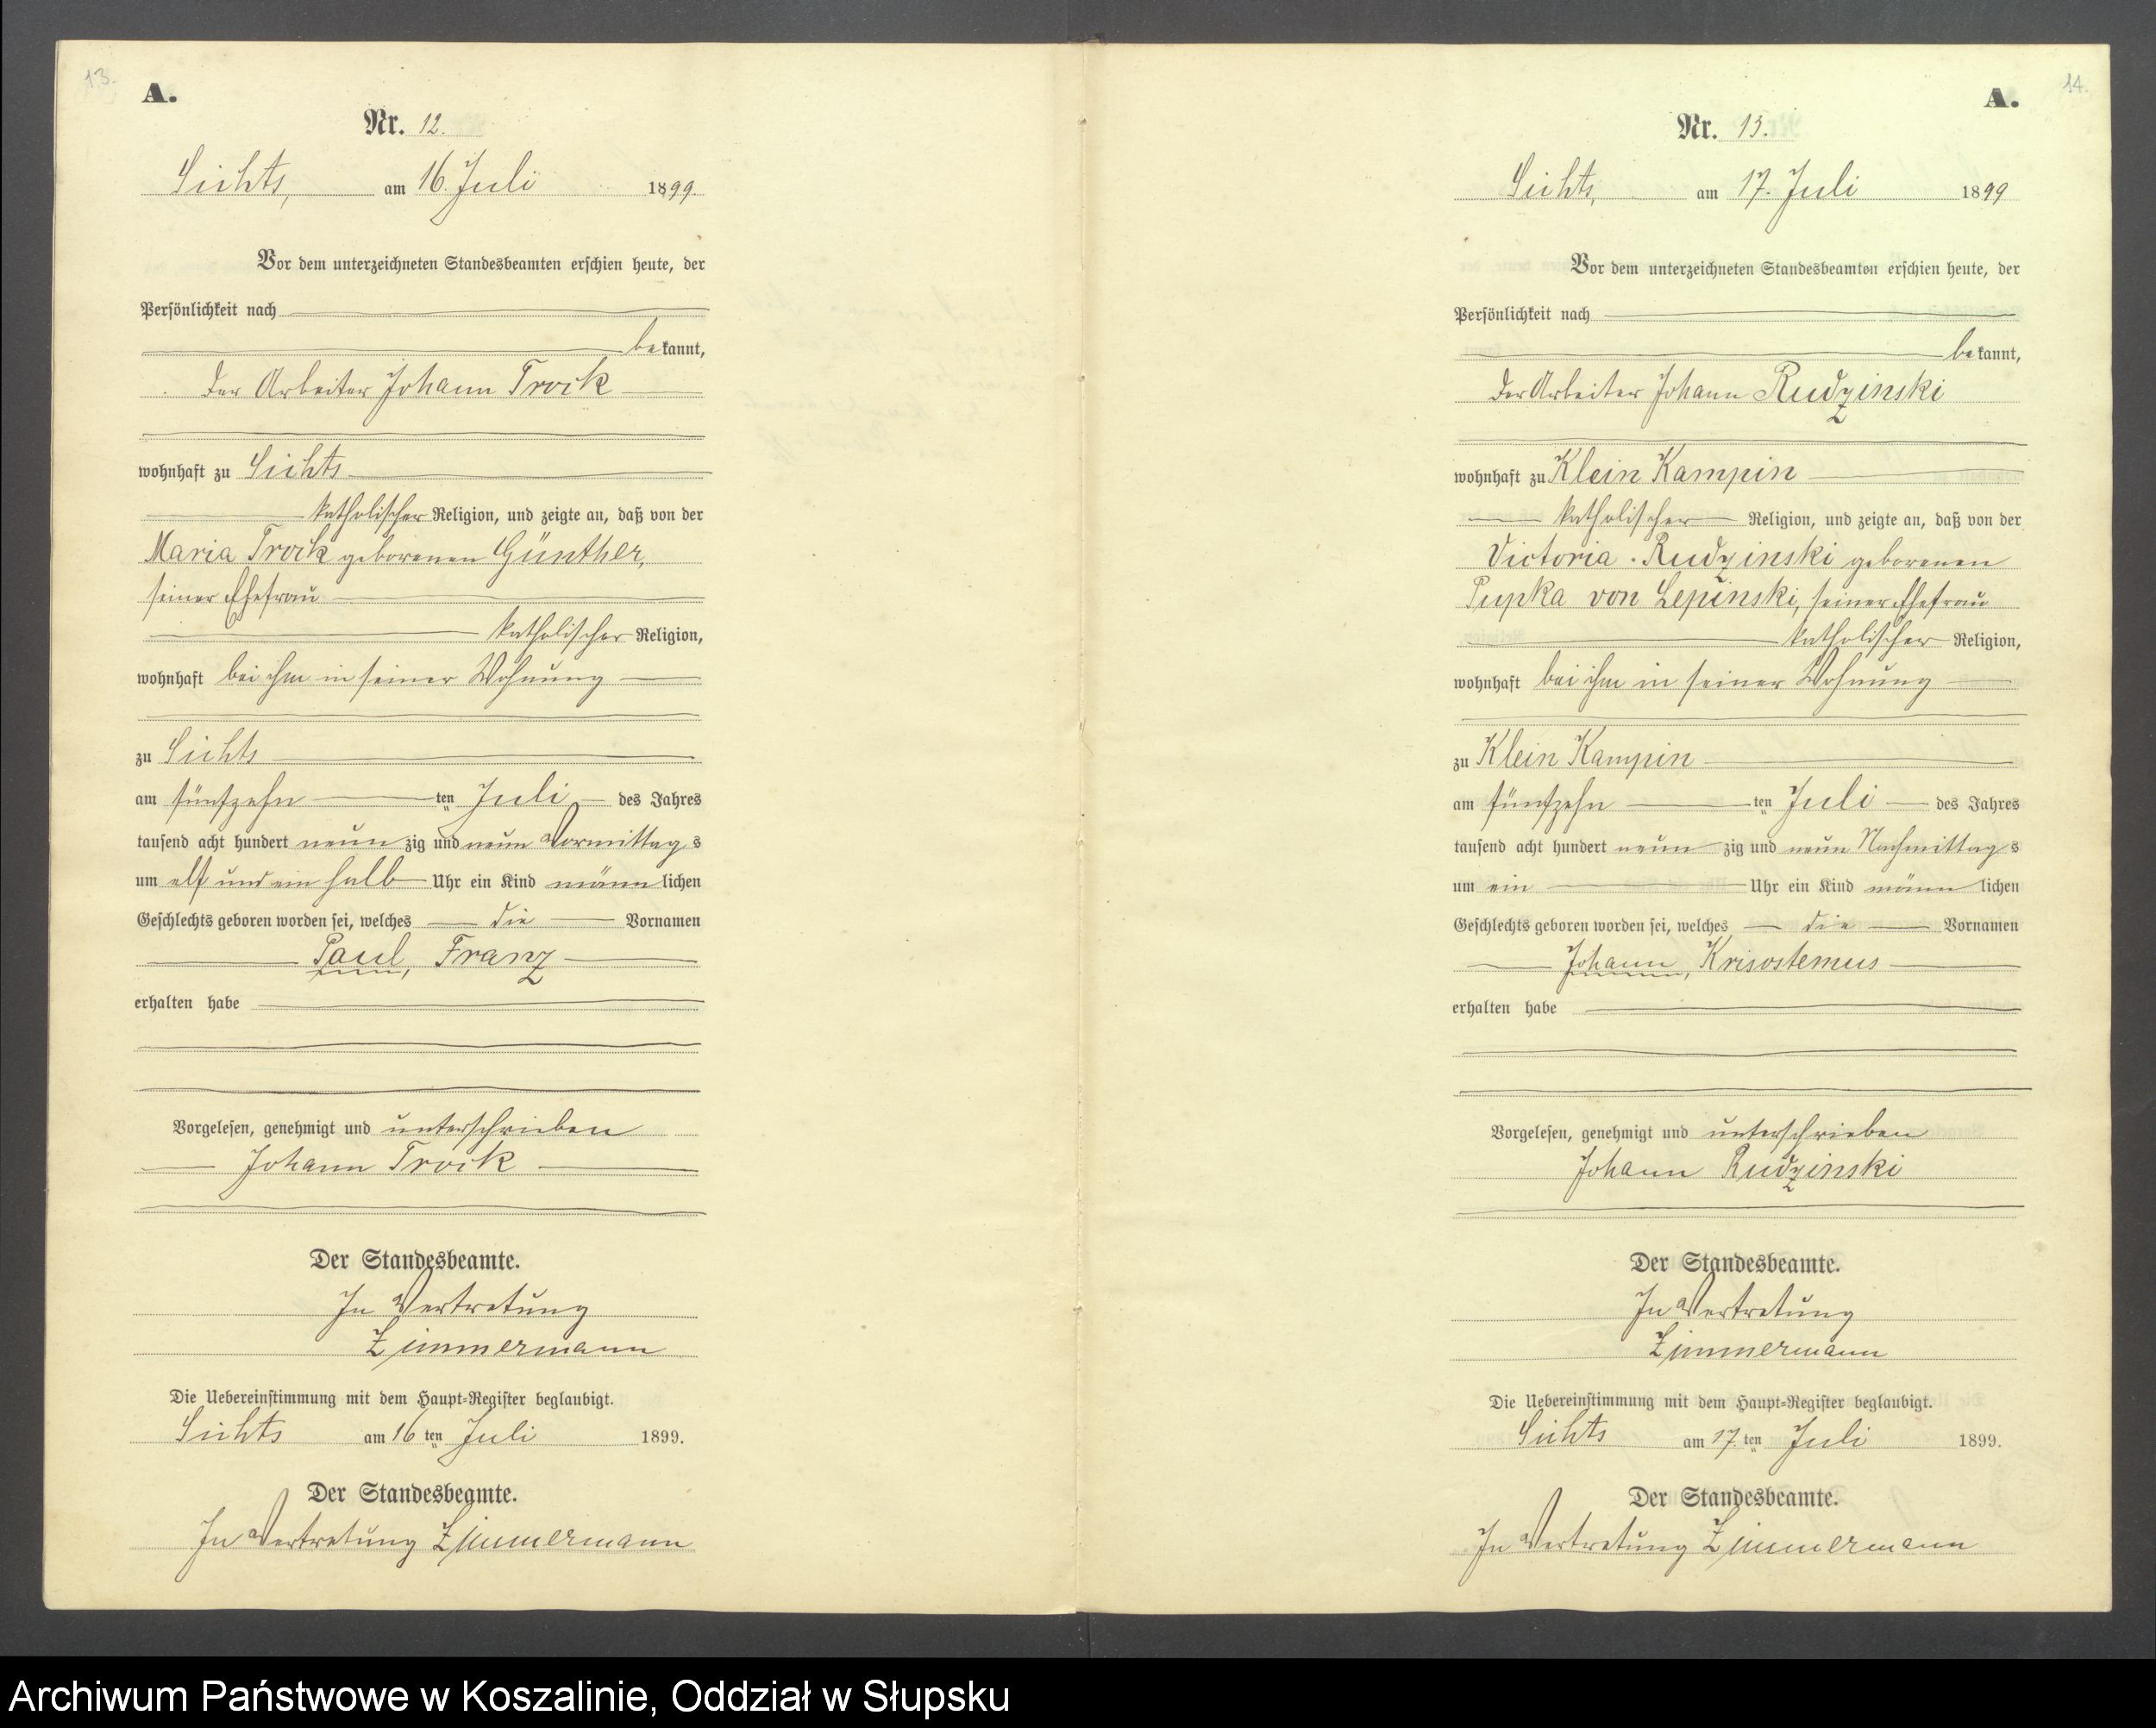 13.
A.
Nr. 12.
Sichts, am 16. Juli 1899.
Vor dem unterzeichneten Standesbeamten erschien heute, der
Persönlichkeit nach
bekannt,
der Arbeiter Johann Trock
wohnhaft zu Sichts
katholischer Religion, und zeigte an, daß von der
Maria Trock geborenen Günther,
seiner Ehefrau
katholischer Religion,
wohnhaft bei ihm in seiner Wohnung
zu Sichts
am fünfzehn ten Juli des Jahres
tausend acht hundert neun zig und neun Vormittags
um elf und ein halb Uhr ein Kind männlichen
Geschlechts geboren worden sei, welches die Vornamen
Paul, Franz
erhalten habe
Vorgelesen, genehmigt und unterschrieben
Johann Trock
Der Standesbeamte.
In Vertretung
Zimmermann
Die Uebereinstimmung mit dem Haupt-Register beglaubigt.
Sichts am 16 ten Juli 1899.
Der Standesbeamte.
In Vertretung Zimmermann
14.
A.
Nr. 13.
Sichts, am 17. Juli 1899
Vor dem unterzeichneten Standesbeamten erschien heute, der
Persönlichkeit nach
bekannt,
der Arbeiter Johann Rudzinski
wohnhaft zu Klein Kampin
katholischer Religion, und zeigte an, daß von der
Victoria Rudzinski geborenen
Pupka von Lepinski, seiner Ehefrau
katholischer Religion,
wohnhaft bei ihm in seiner Wohnung
zu Klein Kampin
am fünfzehn ten Juli des Jahres
tausend acht hundert neun zig und neun Nachmittags
um ein Uhr ein Kind männlichen
Geschlechts geboren worden sei, welches die Vornamen
Johann, Krisostemus
erhalten habe
Vorgelesen, genehmigt und unterschrieben
Johann Rudzinski
Der Standesbeamte.
In Vertretung
Zimmermann
Die Uebereinstimmung mit dem Haupt-Register beglaubigt.
Sichts am 17. ten Juli 1899.
Der Standesbeamte.
In Vertretung Zimmermann
Archiwum Państwowe w Koszalinie, Oddział w Słupsku